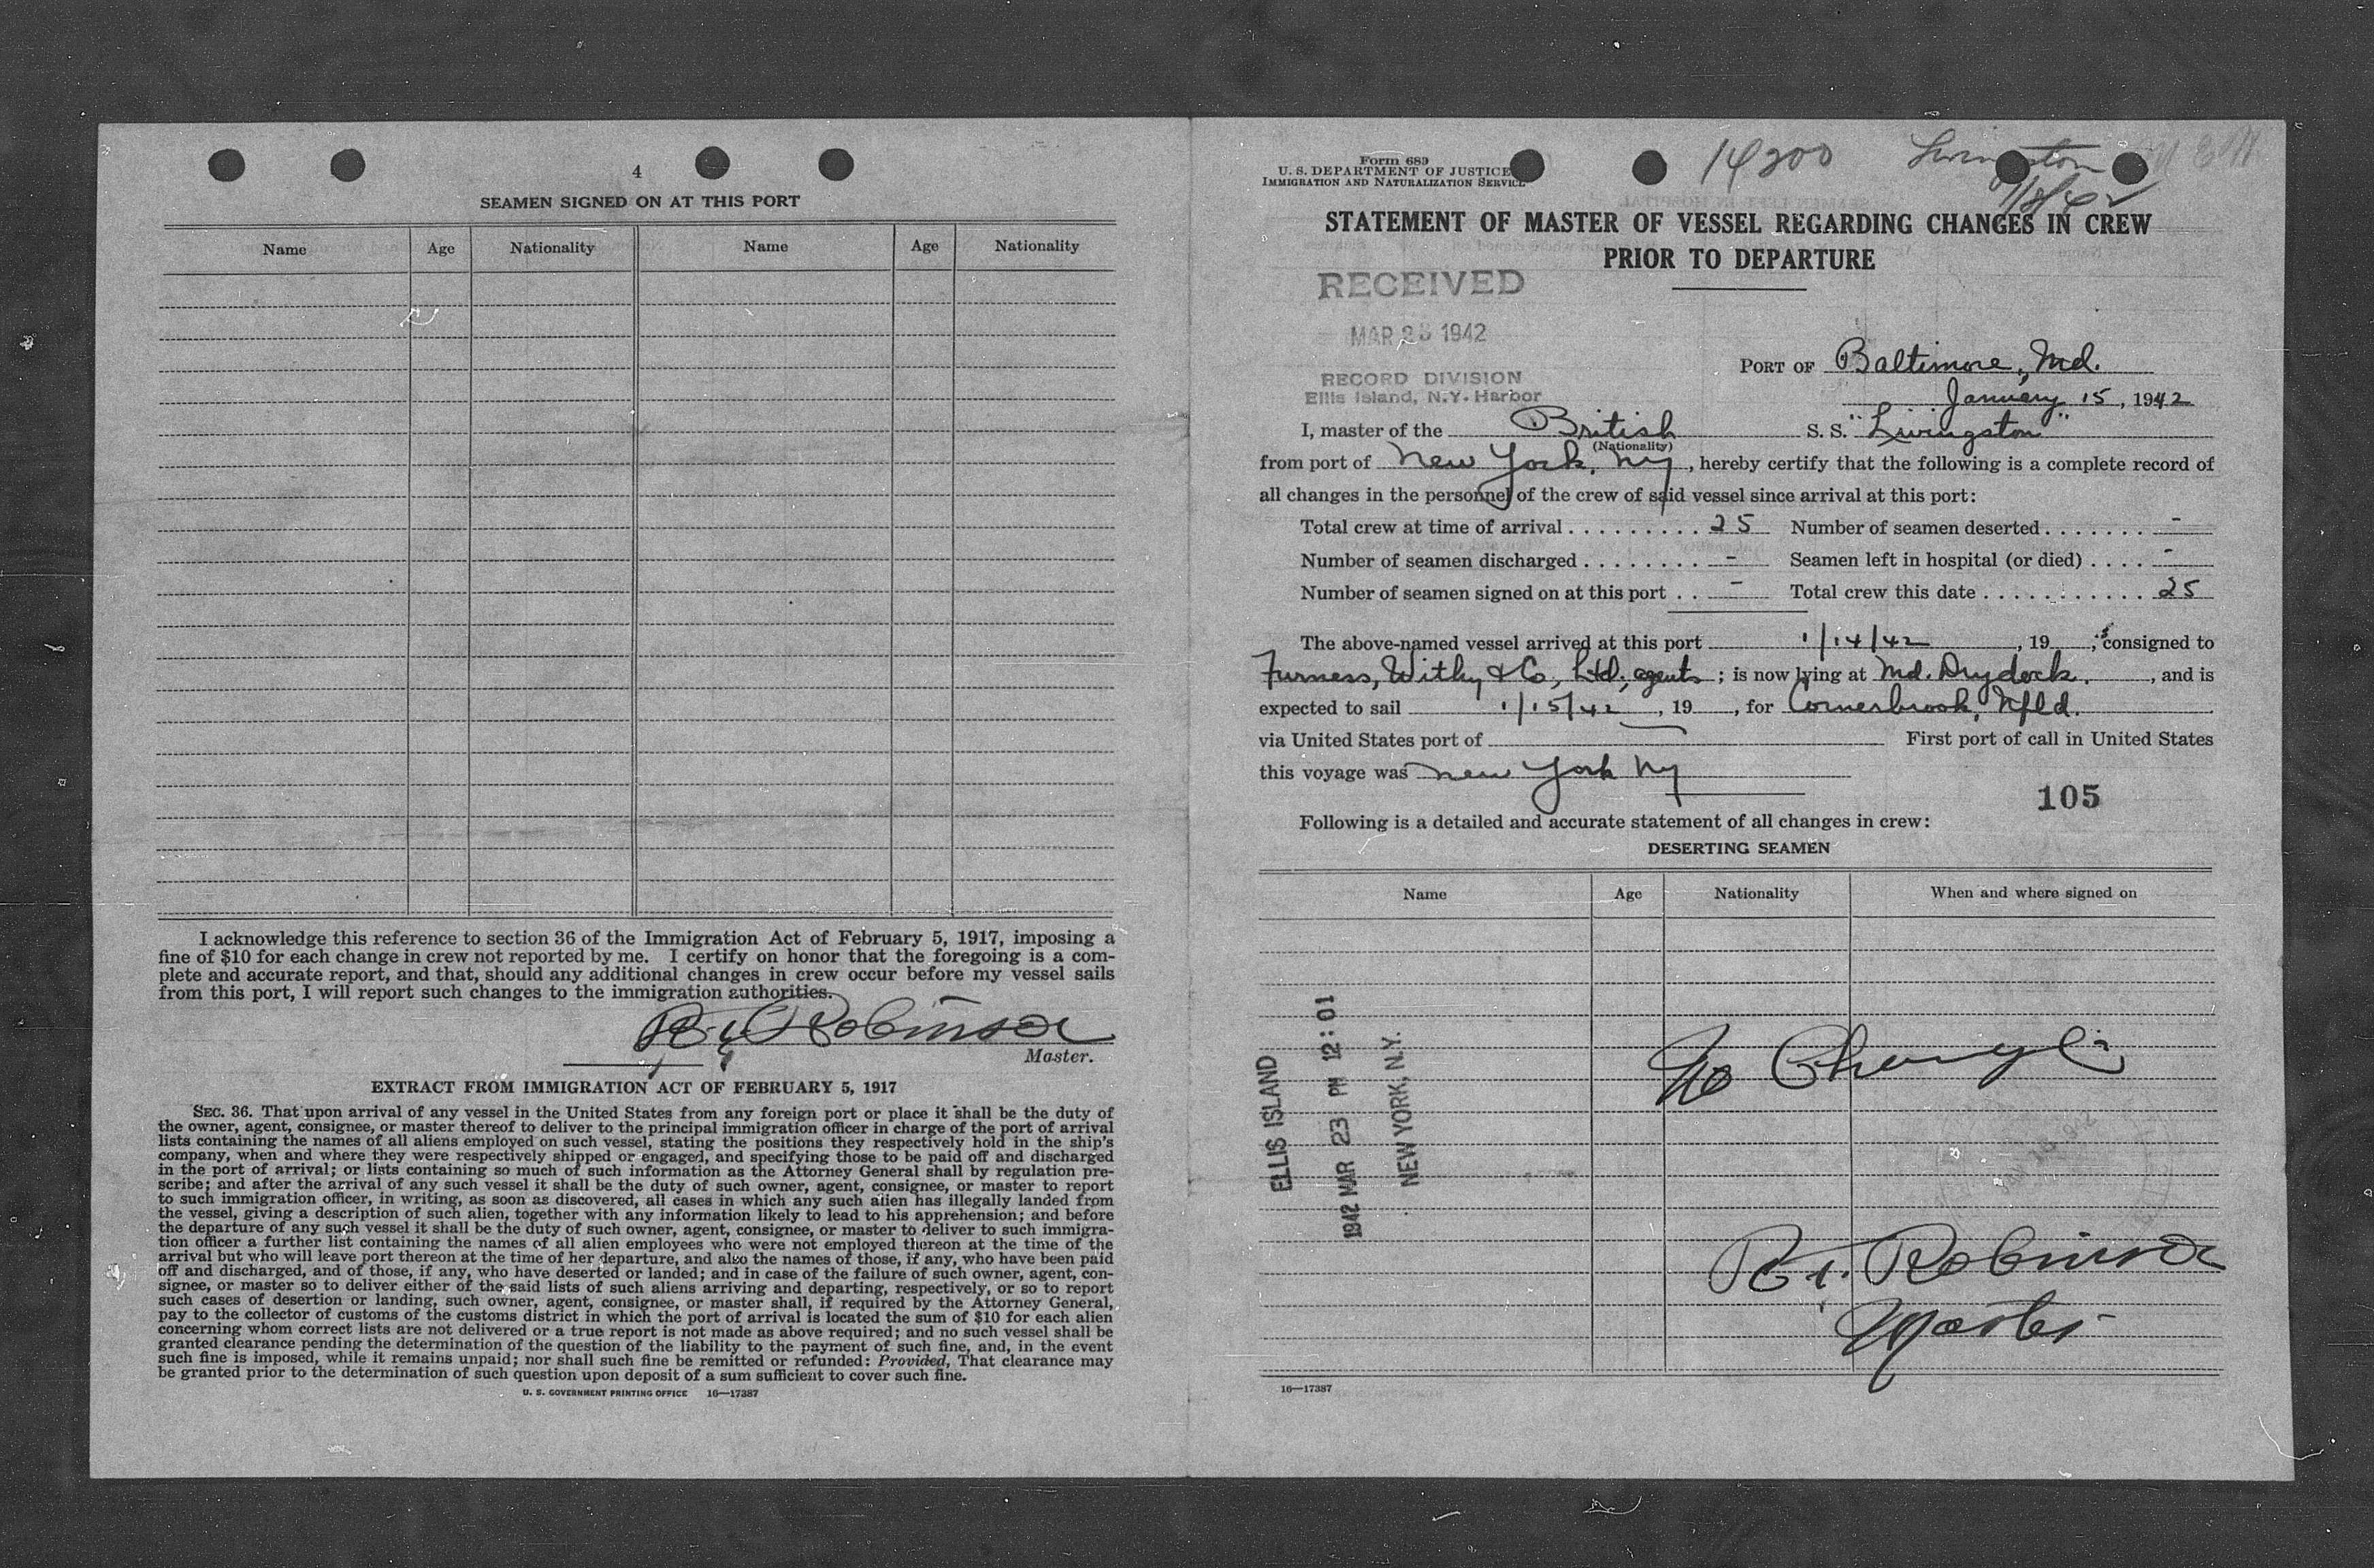 4
SEAMEN SIGNED ON AT THIS PORT
Name Age Nationality Name Age Nationality
I acknowledge this reference to section 36 of the Immigration Act of February 5, 1917, imposing a
fine of $10 for each change in crew not reported by me. I certify on honor that the foregoing is a com-
plete and accurate report, and that, should any additional changes in crew occur before my vessel sails
from this port, I will report such changes to the immigration authorities.
Robinson
Master.
EXTRACT FROM IMMIGRATION ACT OF FEBRUARY 5, 1917
SEC. 36. That upon arrival of any vessel in the United States from any foreign port or place it shall be the duty of
the owner, agent, consignee, or master thereof to deliver to the principal immigration officer in charge of the port of arrival
lists containing the names of all aliens employed on such vessel, stating the positions they respectively hold in the ship's
company, when and where they were respectively shipped or engaged, and specifying those to be paid off and discharged
in the port of arrival; or lists containing so much of such information as the Attorney General shall by regulation pre-
scribe; and after the arrival of any such vessel it shall be the duty of such owner, agent, consignee, or master to report
to such immigration officer, in writing, as soon as discovered, all cases in which any such alien has illegally landed from
the vessel, giving a description of such alien, together with any information likely to lead to his apprehension; and before
the departure of any such vessel it shall be the duty of such owner, agent, consignee, or master to deliver to such immigra-
tion officer a further list containing the names of all alien employees who were not employed thereon at the time of the
arrival but who will leave port thereon at the time of her departure, and also the names of those, if any, who have been paid
off and discharged, and of those, if any, who have deserted or landed; and in case of the failure of such owner, agent, con-
signee, or master so to deliver either of the said lists of such aliens arriving and departing, respectively, or so to report
such cases of desertion or landing, such owner, agent, consignee, or master shall, if required by the Attorney General,
pay to the collector of customs of the customs district in which the port of arrival is located the sum of $10 for each alien
concerning whom correct lists are not delivered or a true report is not made as above required; and no such vessel shall be
granted clearance pending the determination of the question of the liability to the payment of such fine, and, in the event
such fine is imposed, while it remains unpaid; nor shall such fine be remitted or refunded: Provided, That clearance may
be granted prior to the determination of such question upon deposit of a sum sufficient to cover such fine.
U. S. GOVERNMENT PRINTING OFFICE 16—17387
Form 689
U. S. DEPARTMENT OF JUSTICE
IMMIGRATION AND NATURALIZATION SERVICE
14200 Livingston
STATEMENT OF MASTER OF VESSEL REGARDING CHANGES IN CREW
PRIOR TO DEPARTURE
RECEIVED
MAR 1942
RECORD DIVISION
Ellis Island, N.Y. Harbor
PORT OF Baltimore, Md.
January 15, 1942
I, master of the British S. S. "Livingston"
(Nationality)
from port of New York, NY, hereby certify that the following is a complete record of
all changes in the personnel of the crew of said vessel since arrival at this port:
Total crew at time of arrival . . . . . . . . . 25 Number of seamen deserted . . . . . . . -
Number of seamen discharged . . . . . . . . - Seamen left in hospital (or died) . . . . -
Number of seamen signed on at this port . . - Total crew this date . . . . . . . . . . . 25
The above-named vessel arrived at this port 1/14/42, 19 ; consigned to
Furness, Withy & Co., Ltd., agents ; is now lying at Md. Drydock. , and is
expected to sail 1/15/42 , 19 , for Cornerbrook, Nfld.
via United States port of First port of call in United States
this voyage was New York NY
105
Following is a detailed and accurate statement of all changes in crew:
DESERTING SEAMEN
Name Age Nationality When and where signed on
ELLIS ISLAND
1942 MAR 23 PM 12:01
NEW YORK, N.Y.
No Change
Robinson
Master
16—17387